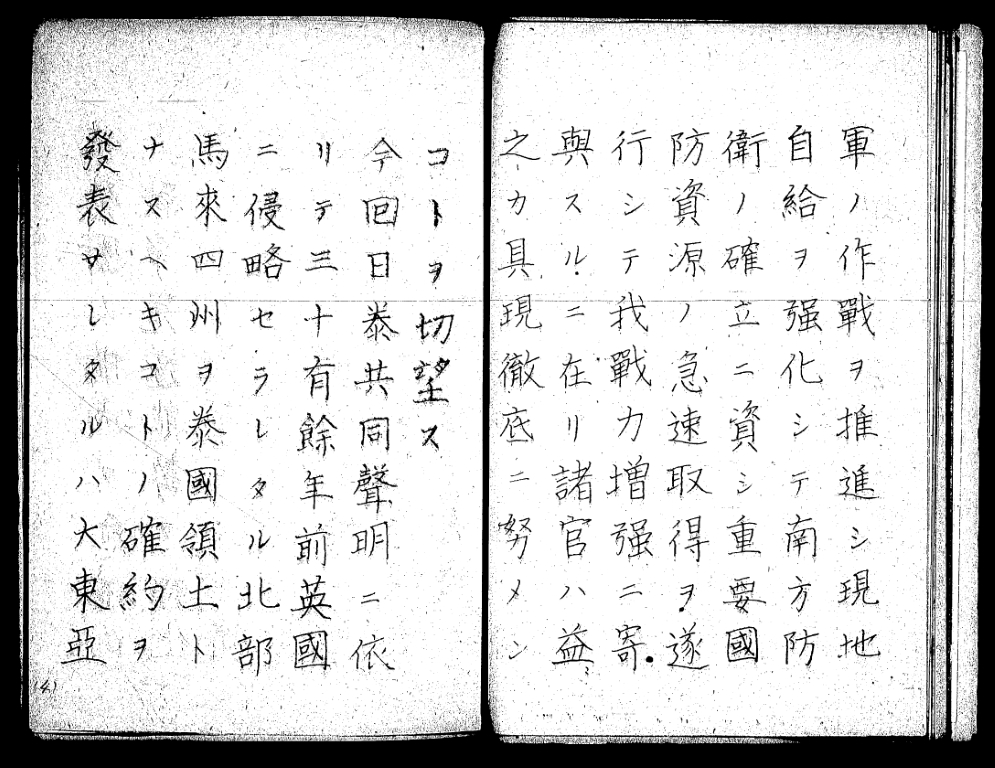 軍ノ作戰ヲ推進シ現地
自給ヲ强化シテ南方防
衛ノ確立ニ資シ重要國
防資源ノ急速取得ヲ遂
行シテ我戰力增强ニ寄
與スルニ在リ諸官ハ益
之カ具現徹底ニ努メン
コトヲ切望ス
今回日泰共同聲明ニ依
リテ三十有餘年前英國
ニ侵略セラレタル北部
馬來四州ヲ泰國領土ト
ナスヘキコトノ確約ヲ
發表サレタルハ大東亞
(4)